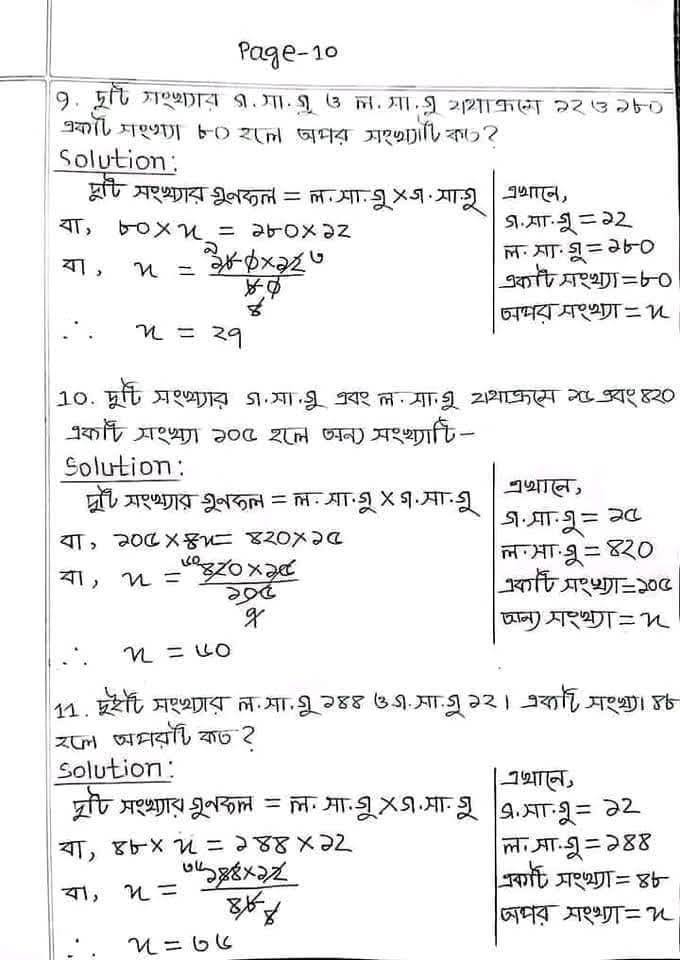 Page-10
9. দুটি সংখ্যার গ.সা.গু ও ল.সা.গু যথাক্রমে ১২ ও ১৮০
একটি সংখ্যা ৮০ হলে অপর সংখ্যাটি কত?
Solution:
দুটি সংখ্যার গুনফল = ল.সা.গু × গ.সা.গু
বা, ৮০ × x = ১৮০ × ১২
বা, x = ১৮০ × ১২ / ৮০
∴ x = ২৭
এখানে,
গ.সা.গু = ১২
ল.সা.গু = ১৮০
একটি সংখ্যা = ৮০
অপর সংখ্যা = x
10. দুটি সংখ্যার গ.সা.গু এবং ল.সা.গু যথাক্রমে ১৫ এবং ৪২০
একটি সংখ্যা ১০৫ হলে অন্য সংখ্যাটি -
Solution:
দুটি সংখ্যার গুনফল = ল.সা.গু × গ.সা.গু
বা, ১০৫ × x = ৪২০ × ১৫
বা, x = ৪২০ × ১৫ / ১০৫
৭
∴ x = ৬০
এখানে,
গ.সা.গু = ১৫
ল.সা.গু = ৪২০
একটি সংখ্যা = ১০৫
অন্য সংখ্যা = x
11. দুইটি সংখ্যার ল.সা.গু ১৪৪ ও গ.সা.গু ১২। একটি সংখ্যা ৪৮
হলে অপরটি কত?
Solution:
দুটি সংখ্যার গুনফল = ল.সা.গু × গ.সা.গু
বা, ৪৮ × x = ১৪৪ × ১২
বা, x = ১৪৪ × ১২ / ৪৮
∴ x = ৩৬
এখানে,
গ.সা.গু = ১২
ল.সা.গু = ১৪৪
একটি সংখ্যা = ৪৮
অপর সংখ্যা = x